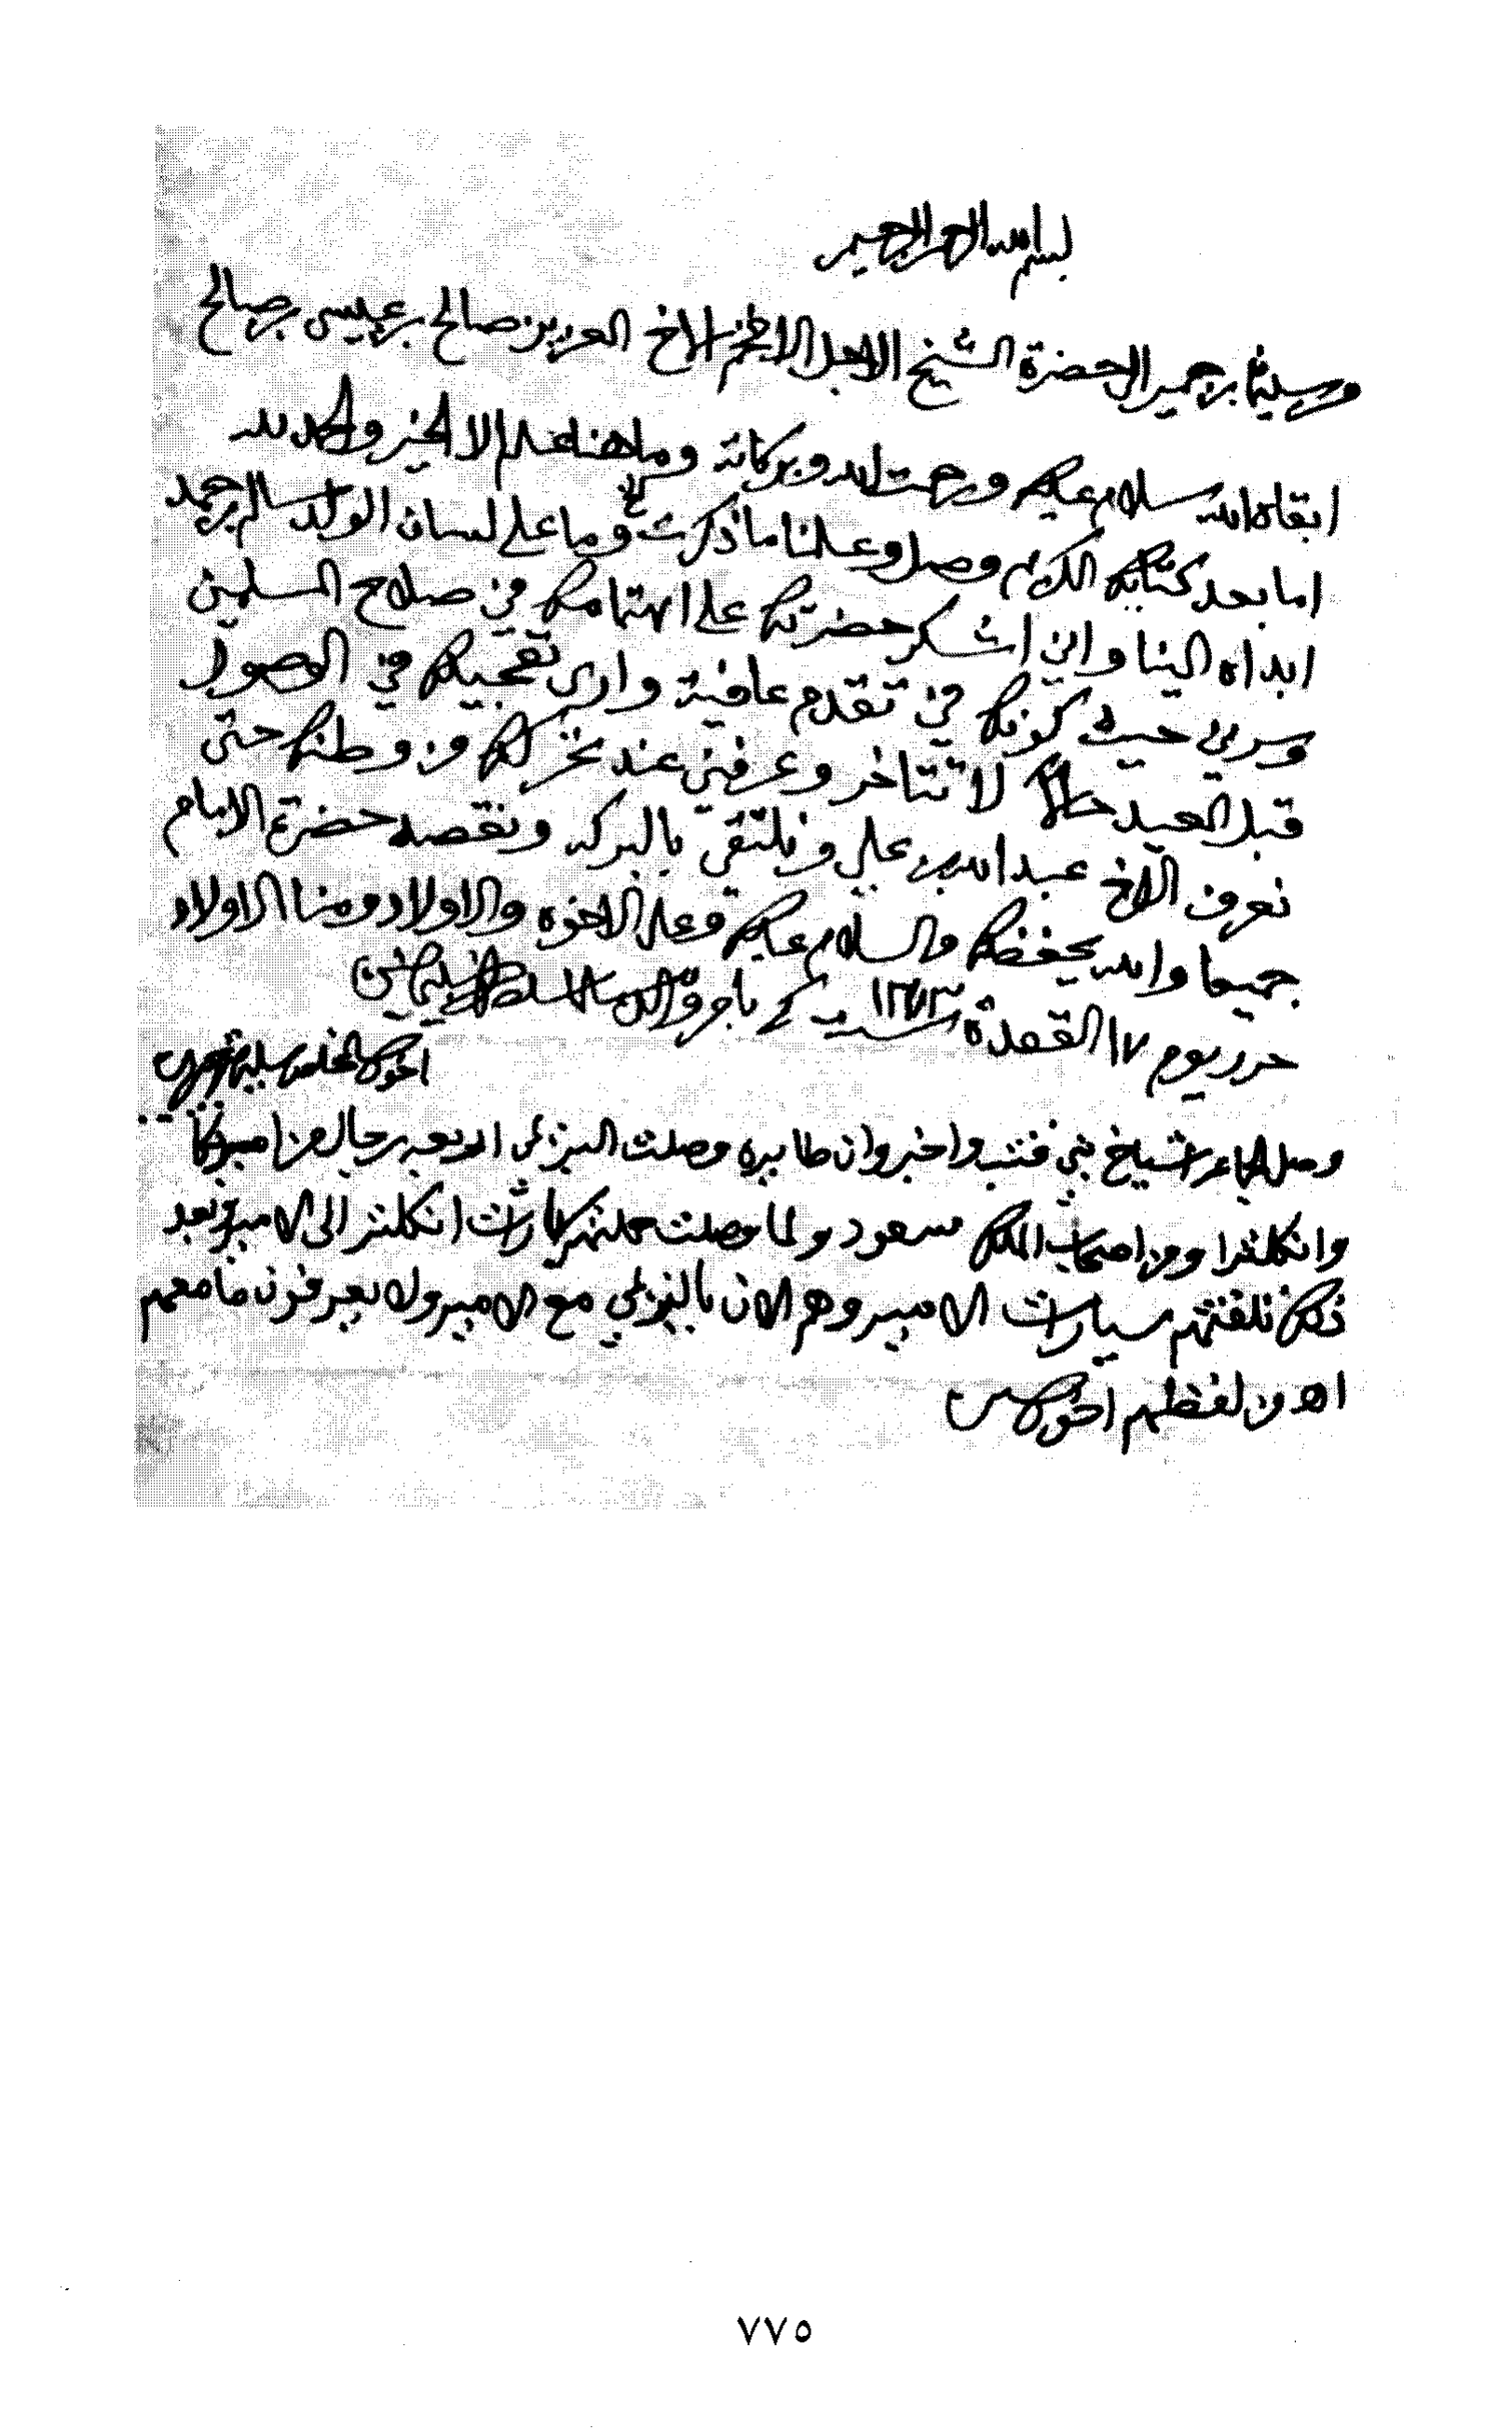 بسم الله الرحمن الرحيم
من سليمان بن حمير الى حضرة الشيخ الاجل الاكرم الاخ العزيز صالح بن عيسى بن صالح
ابقاه الله سلام عليكم ورحمت الله وبركاته وما هنا علم الا الخير والحمد لله
اما بعد كتابكم الكريم وصل وعلمنا ما ذكرت وما على لسان الولد سالم بن حمد
ابداه الينا واني اشكر حضرتكم على اهتمامكم في صلاح المسلمين
وسرني حيث كونكم في تقدم عافية وارى تعجيلكم في الوصول
قبل العيد لا تتاخر وعرفني عند تحرككم من وطنكم حتى
نعرف الاخ عبدالله بن علي ونلتقي بالبركه ونقصد حضرة الامام
جميعا والله يحفظكم والسلام عليكم وعلى الاخوه والاولاد ومنا الاولاد
حرر يوم ١٧ القعدة سنة ١٣٧٣
اخوكم المخلص سليمان بن حمير
وصل من شيخ بني قتب واخبر وان طايره وصلت البريمي اربعه رجال من امريكا
وانكلترا ومن اصحاب الملك سعود ولما وصلت حملتهم سيارات انكلتر الى الامير وبعد
ذلك تلقتهم سيارات الامير وهم الان بالبريمي مع الامير ولا يعرفون ما معهم
اهـ من لفظهم اخوكم س
٧٧٥